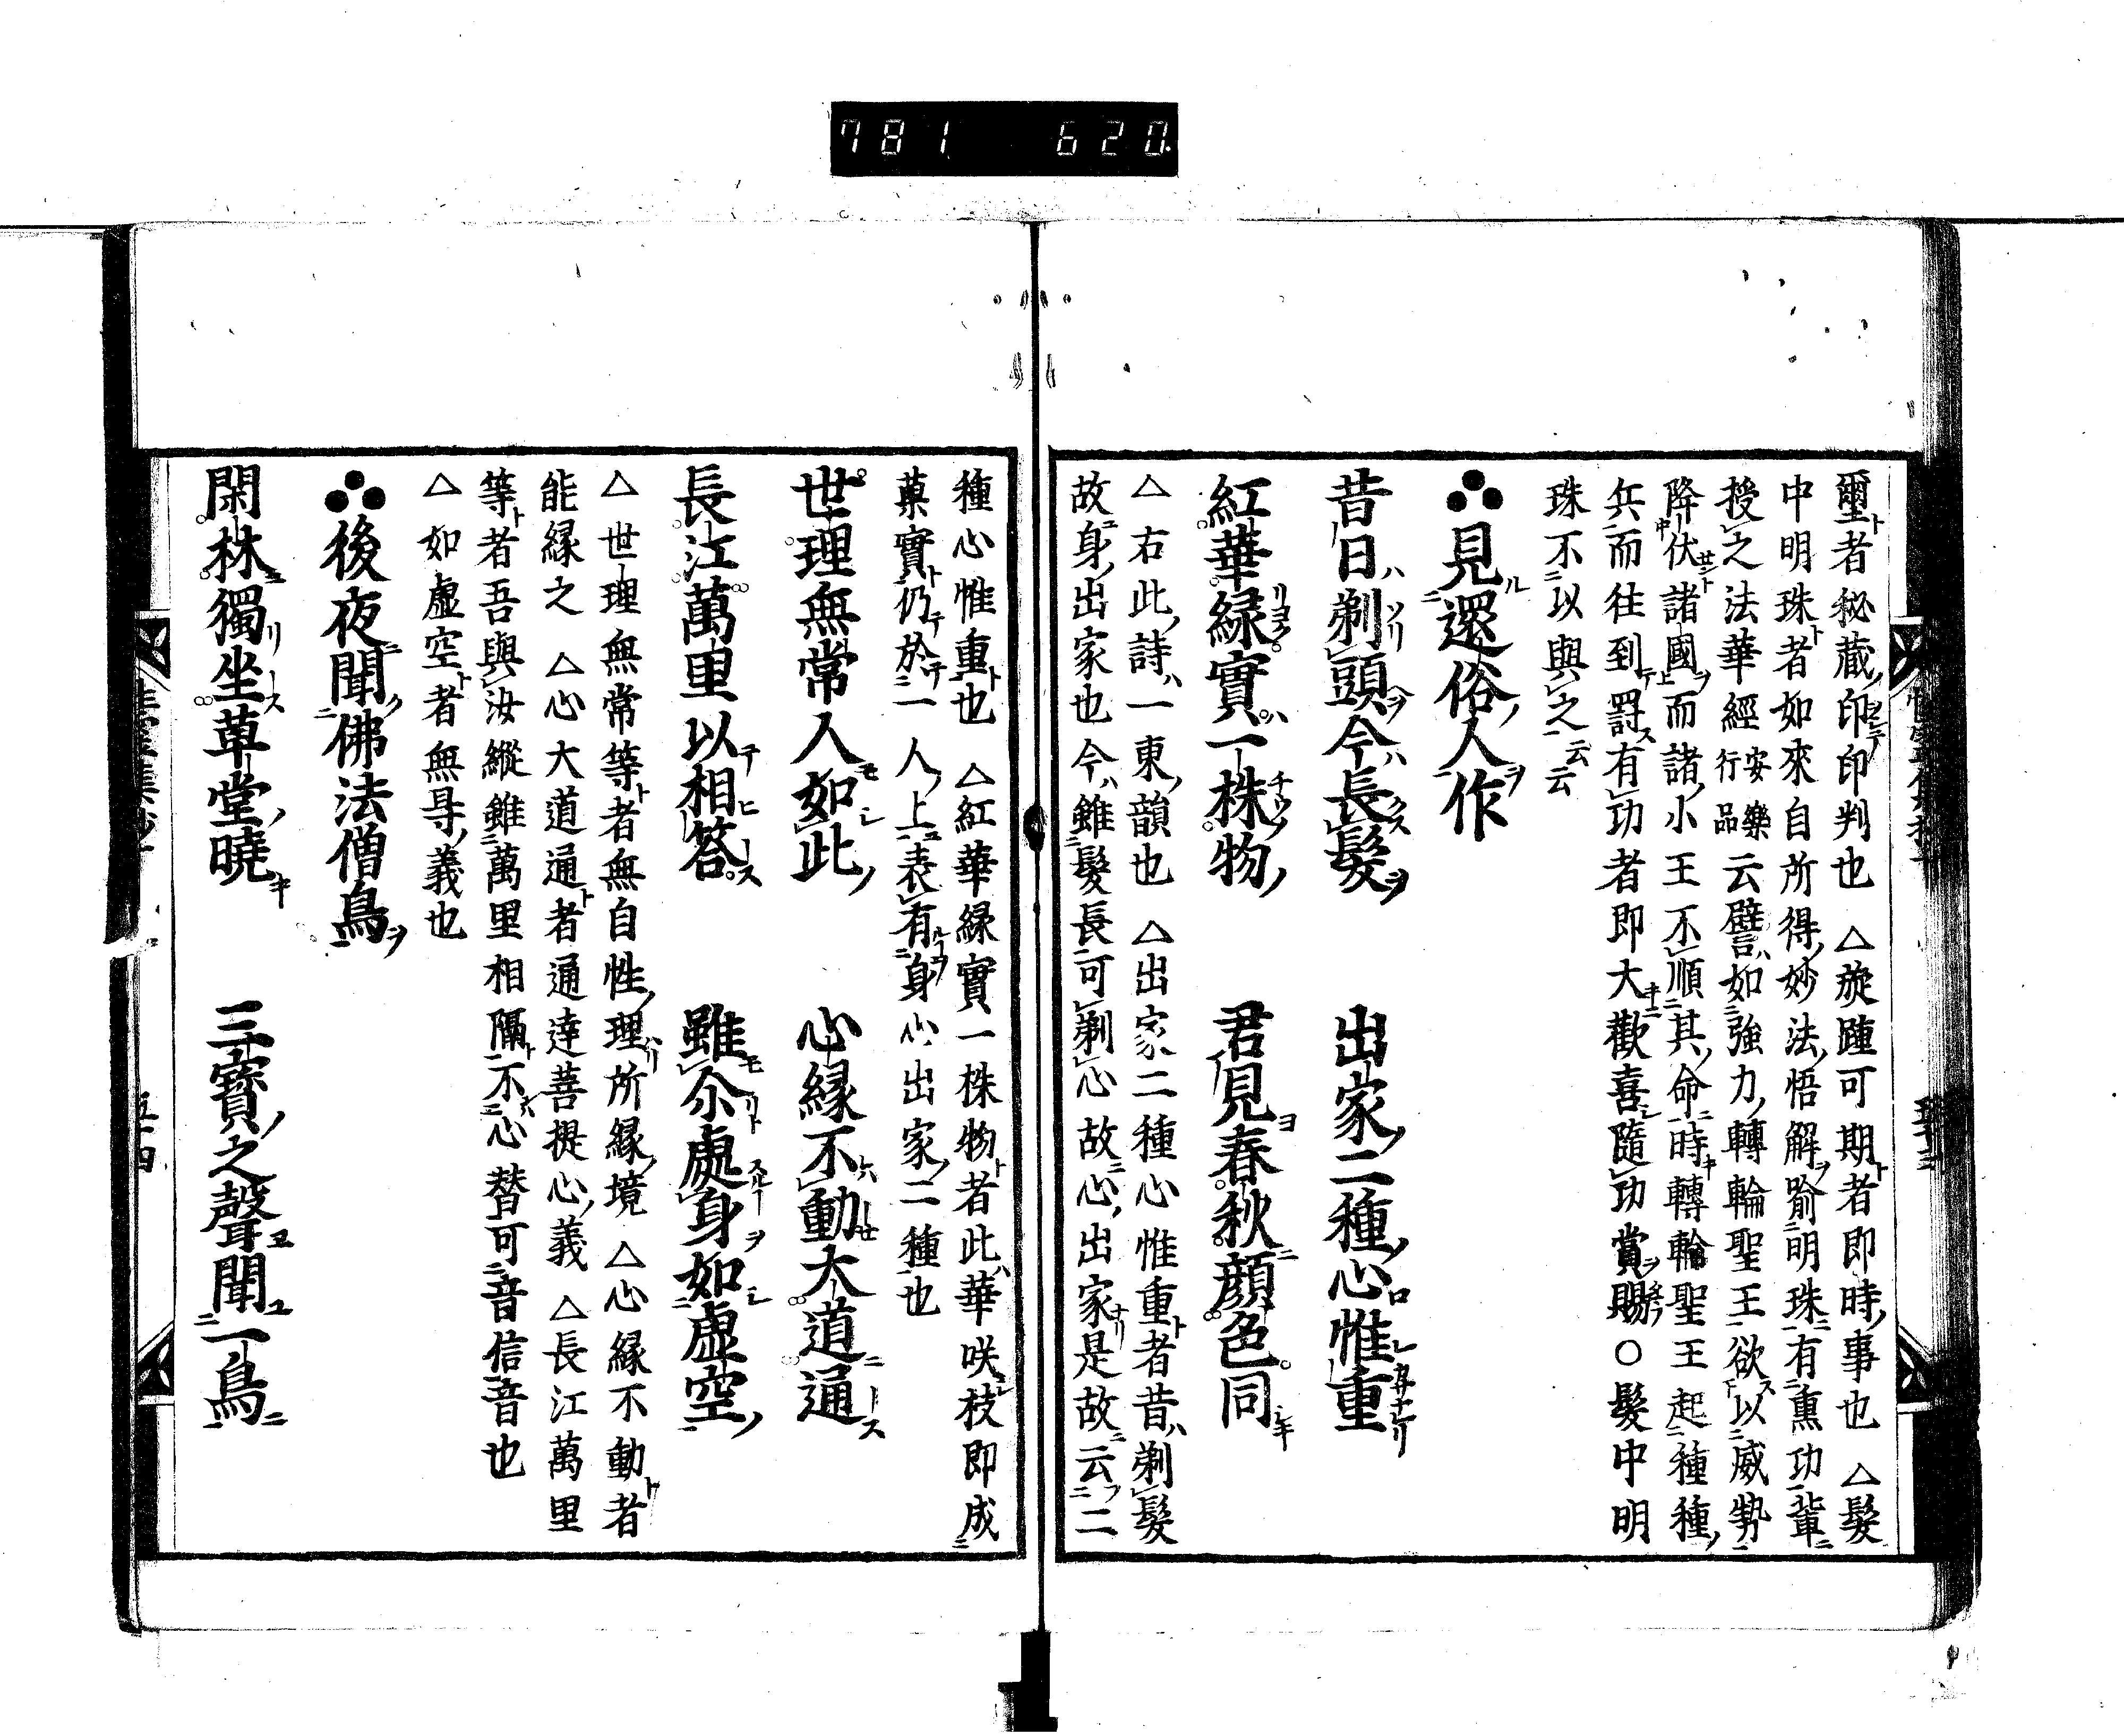 781 620
璽者秘蔵印印判也 △旋踵可期者即時事也 △髮
中明珠者如來自所得妙法悟解喻明珠有熏功輩
授之法華經安樂行品云譬如強力轉輪聖王欲以威勢
降伏諸國而諸小王不順其命時轉輪聖王起種種
兵而往到罸有功者即大歡喜隨功賞賜○髮中明
珠不以與之云云
見還俗人作
昔日剃頭今長髮 出家二種心惟重
紅華緑實一株物 君見春秋顔色同
△右此詩一東韻也 △出家二種心惟重者昔剃髮
故身出家也今雖髮長可剃心故心出家是故云二
種心惟重也 △紅華緑實一株物者此華咲枝即成
菓實仍於一人上表有身心出家二種也
世理無常人如此 心縁不動大道通
長江萬里以相答 雖尒處身如虚空
△世理無常等者無自性理所縁境 △心縁不動者
能縁之 △心大道通者通達菩提心義 △長江萬里
等者吾與汝縱雖萬里相隔不心替可音信音也
△如虚空者無㝵義也
後夜聞佛法僧鳥
閑林獨坐草堂曉 三寶之聲聞一鳥